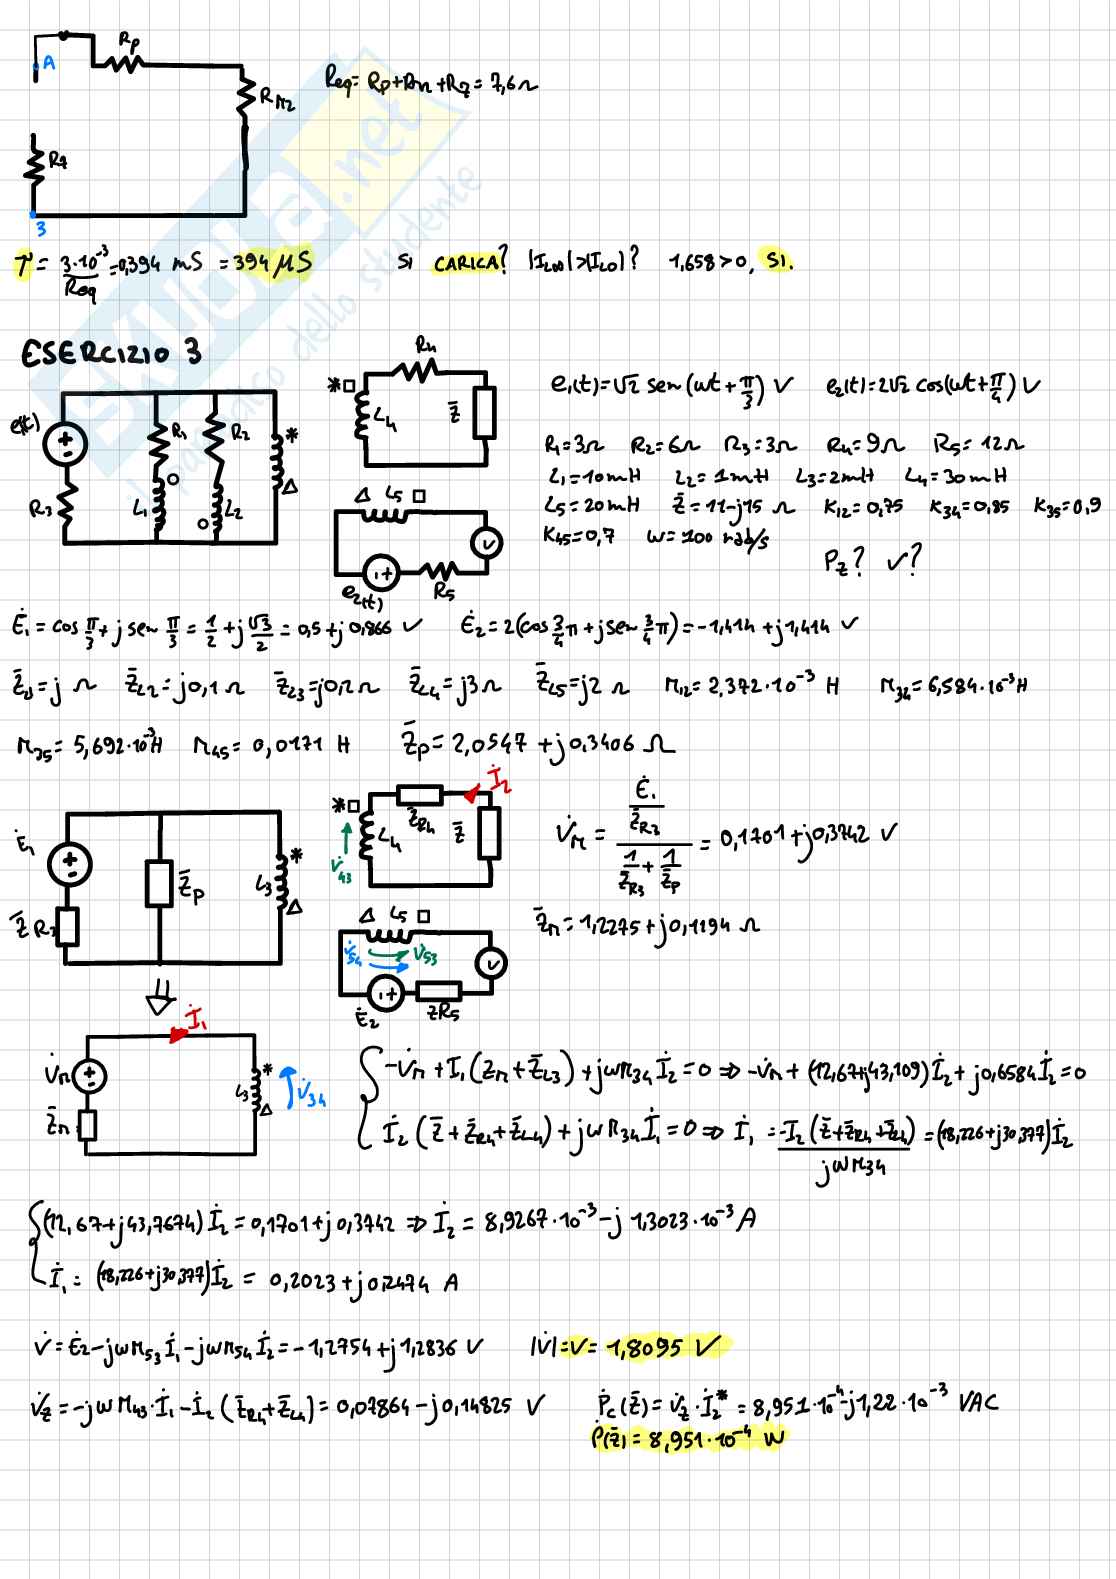 A
Rp
RM2
R7
3
Req= Rp+Rm+R7=7,6Ω
τ= 3·10⁻³/Req =0,394 mS =394 μS
SI CARICA? |IL∞|>|IL0|? 1,658>0, SI.
ESERCIZIO 3
e(t) R1 R2 * R3 L1 L2 Δ
*□ R4 L4 Z̄
Δ L5 □ V e2(t) R5
e1(t)=√2 sen(wt+π/3) V e2(t)=2√2 cos(wt+π/4) V
R1=3Ω R2=6Ω R3=3Ω R4=9Ω R5=12Ω
L1=10mH L2=1mH L3=2mH L4=30mH
L5=20mH Z̄=11-j15 Ω K12=0,75 K34=0,85 K35=0,9
K45=0,7 w=100 rad/s
Pz? V?
Ė1=cos π/3+j sen π/3=1/2+j√3/2=0,5+j0,866 V Ė2=2(cos 3/4π+j sen 3/4π)=-1,414+j1,414 V
Z̄L1=j Ω Z̄L2=j0,1Ω Z̄L3=j0,2Ω Z̄L4=j3Ω Z̄L5=j2 Ω M12=2,372·10⁻³ H M34=6,584·10⁻³H
M35=5,692·10⁻³H M45=0,0171 H Z̄p=2,0547+j0,3406 Ω
Ė1 Z̄R3 Z̄p L3 * Δ
*□ Z̄R4 İ2 L4 Z̄ V̇43
Δ L5 □ V̇54 V̇53 V Ė2 ZR5
V̇M = (Ė1/Z̄R3)/(1/Z̄R3+1/Z̄p) = 0,1701+j0,3742 V
Z̄M=1,2275+j0,1194 Ω
İ1 V̇M Z̄M L3 * Δ V̇34
-V̇M+I1(ZM+Z̄L3)+jwM34İ2=0 ⇒ -V̇M+(12,67+j43,109)İ2+j0,6584İ2=0
İ2(Z̄+Z̄R4+Z̄L4)+jwM34İ1=0 ⇒ İ1 = -I2(Z̄+Z̄R4+Z̄L4)/jwM34 =(18,226+j30,377)İ2
(12,67+j43,7674)İ2=0,1701+j0,3742 ⇒ İ2=8,9267·10⁻³-j 1,3023·10⁻³ A
İ1= (18,226+j30,377)İ2 = 0,2023+j0,2474 A
V̇=Ė2-jwM53İ1-jwM54İ2=-1,2754+j1,2836 V |V̇|=V= 1,8095 V
V̇z=-jwM43·İ1-İ2(Z̄R4+Z̄L4)=0,07864-j0,14825 V Ṗc(Z̄)=V̇z·İ2*=8,951·10⁻⁴-j1,22·10⁻³ VAC
P(Z̄)=8,951·10⁻⁴ W
SKUOLA.net
il paradiso dello studente